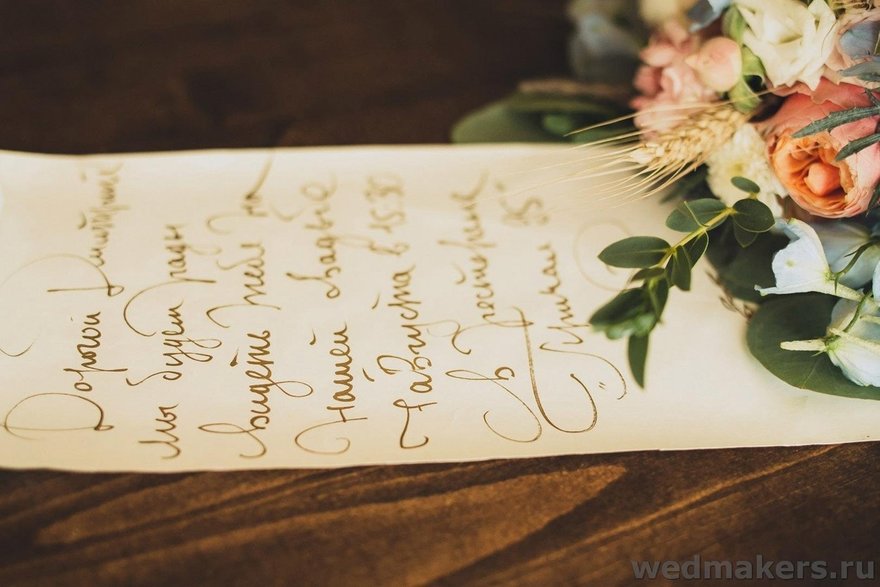 Дорогой Дмитрий
Мы будем рады
видеть тебя на
нашей свадьбе
4 августа в 15:30
в ресторане
wedmakers.ru